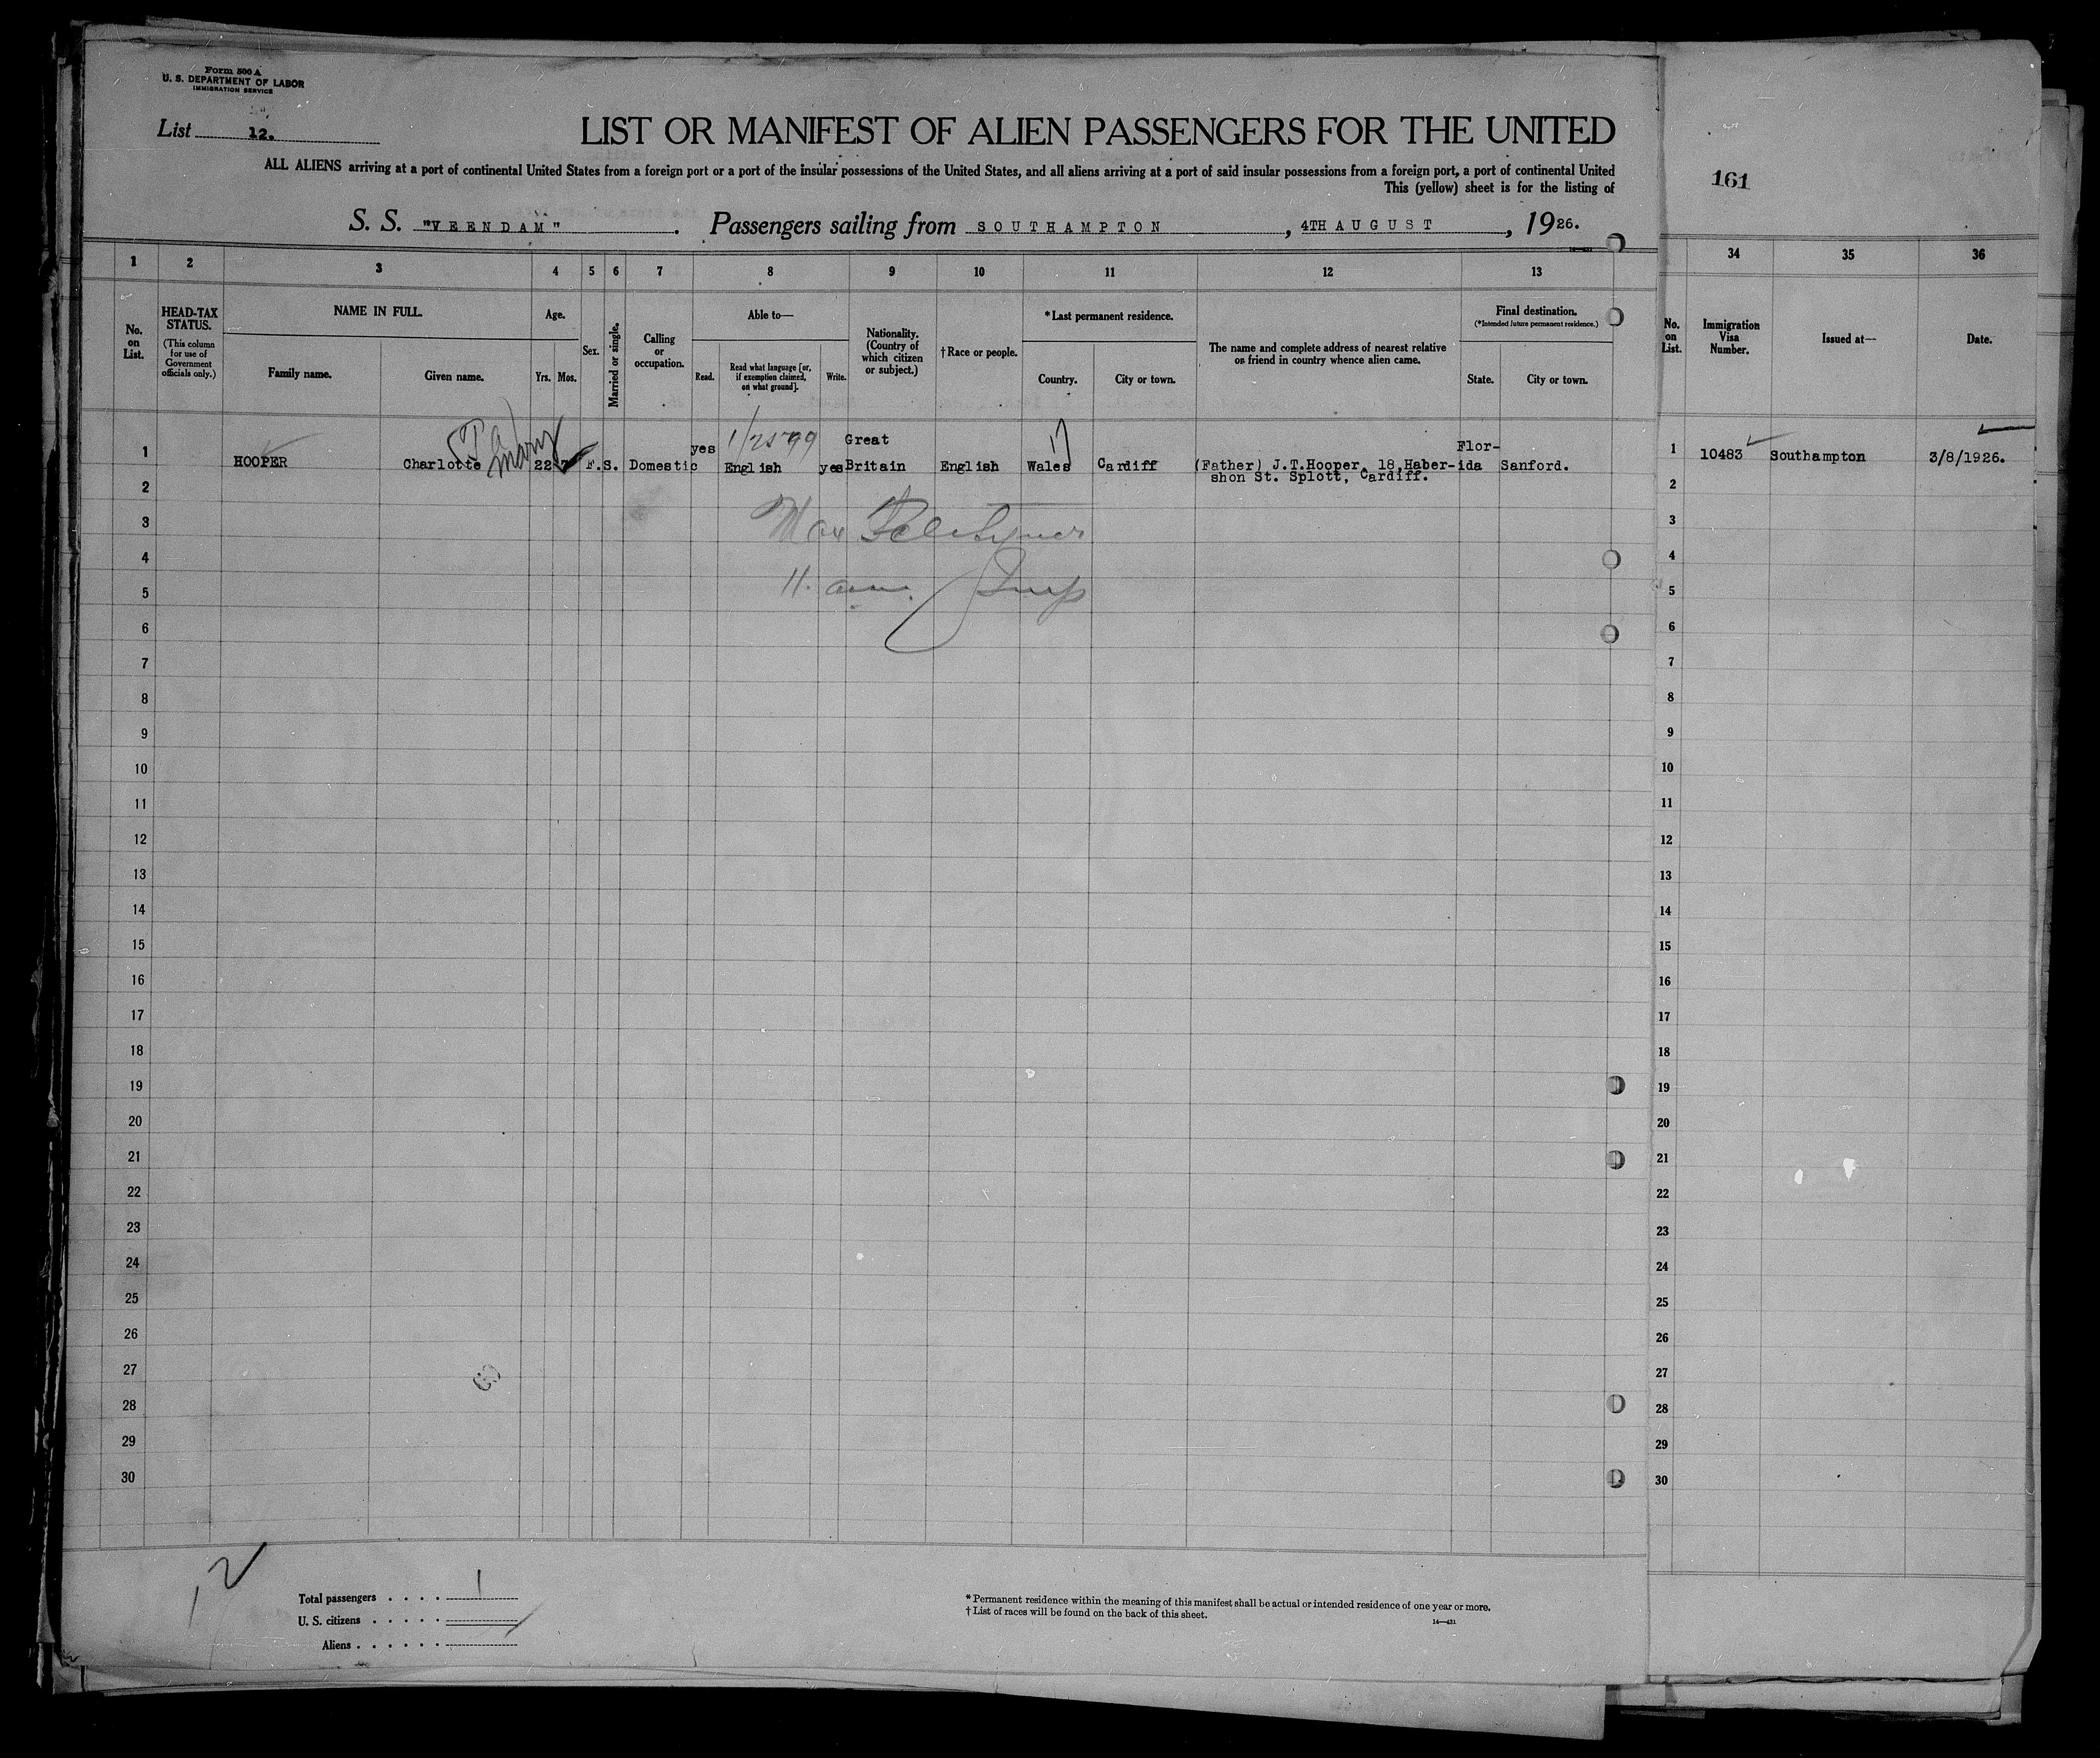 Form 500 A
U. S. DEPARTMENT OF LABOR
IMMIGRATION SERVICE
List 12.
LIST OR MANIFEST OF ALIEN PASSENGERS FOR THE UNITED
ALL ALIENS arriving at a port of continental United States from a foreign port or a port of the insular possessions of the United States, and all aliens arriving at a port of said insular possessions from a foreign port, a port of continental United
This (yellow) sheet is for the listing of
161
S. S. "VEENDAM". Passengers sailing from SOUTHAMPTON, 4TH AUGUST, 1926.
1 2 3 4 5 6 7 8 9 10 11 12 13 34 35 36
No. on List.
HEAD-TAX STATUS.
(This column for use of Government officials only.)
NAME IN FULL.
Family name. Given name.
Age.
Yrs. Mos.
Sex.
Married or single.
Calling or occupation.
Able to—
Read. Read what language [or, if exemption claimed, on what ground]. Write.
Nationality. (Country of which citizen or subject.)
†Race or people.
*Last permanent residence.
Country. City or town.
The name and complete address of nearest relative or friend in country whence alien came.
Final destination.
(*Intended future permanent residence.)
State. City or town.
No. on List.
Immigration Visa Number.
Issued at—
Date.
1 HOOPER Charlotte Mary 22 7 F. S. Domestic yes English yes Great Britain English Wales Cardiff (Father) J.T.Hooper, 18,Haber-shon St. Splott, Cardiff. Flor-ida Sanford. 1 10483 Southampton 3/8/1926.
2 2
3 Max 3
4 4
5 11. am. 5
6 6
7 7
8 8
9 9
10 10
11 11
12 12
13 13
14 14
15 15
16 16
17 17
18 18
19 19
20 20
21 21
22 22
23 23
24 24
25 25
26 26
27 27
28 28
29 29
30 30
12
Total passengers . . . . 1
U. S. citizens . . . . .
Aliens . . . . . .
* Permanent residence within the meaning of this manifest shall be actual or intended residence of one year or more.
† List of races will be found on the back of this sheet.
14—431